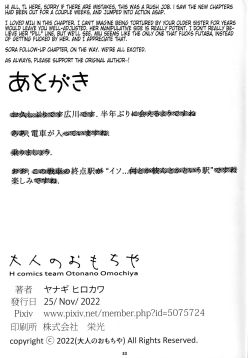 HI ALL, TL HERE, SORRY IF THERE ARE MISTAKES, THIS WAS A RUSH JOB. I SAW THE NEW CHAPTERS
HAD BEEN OUT FOR A COUPLE WEEKS, AND JUMPED INTO ACTION ASAP.
I LOVED MIU IN THIS CHAPTER, I CAN'T IMAGINE BEING TORTURED BY YOUR OLDER SISTER FOR YEARS
WOULD LEAVE YOU WELL-ADJUSTED. HER MANIPULATIVE SIDE IS REALLY POTENT. I DON'T REALLY BELIEVE
HER "PILL" LINE, BUT WE'LL SEE. MIU SEEMS LIKE THE ONLY ONE THAT FUCKS FUTABA, INSTEAD
OF GETTING FUCKED BY HER, AND I APPRECIATE THAT.
SORA FOLLOW-UP CHAPTER, ON THE WAY. WE'RE ALL EXCITED.
AS ALWAYS, PLEASE SUPPORT THE ORIGINAL AUTHOR~!
あとがき
お久しぶりです広川です。半年ぶりに会えるようですね
ああ、電車が入っていますね
乗りましょう。
の終点駅が"イン
楽しみですね。
大人のおもちや
H comics team Otonano Omochiya
著者 ヤナギ ヒロカワ
発行日 25/ Nov/ 2022
Pixiv www.pixiv.net/member.php?id=5075724
印刷所 株式会社 栄光
copyright ⓒ 2022(大人のおもちや) All rights reserved.